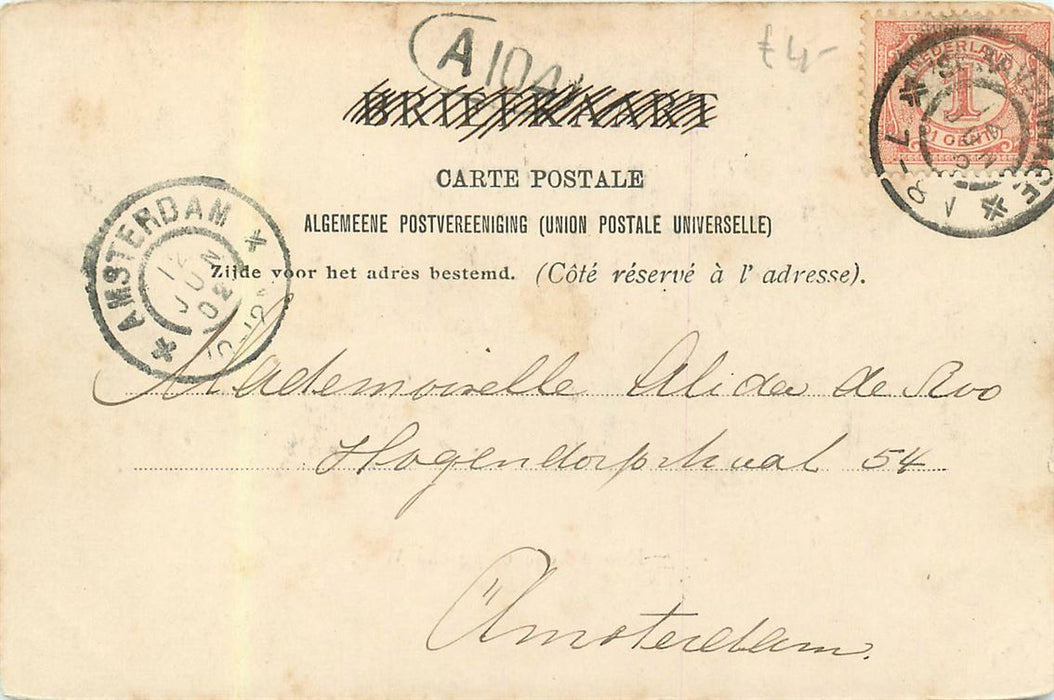 A 104
f 4,-
BRIEFKAART
NEDERLAND
1
1 CENT
'S GRAVENHAGE
7-8
CARTE POSTALE
ALGEMEENE POSTVEREENIGING (UNION POSTALE UNIVERSELLE)
Zijde voor het adres bestemd. (Côté réservé à l' adresse).
AMSTERDAM
12
JUN
02
Mademoiselle Alida de Roo
Hogendorpstraat 54
Amsterdam.